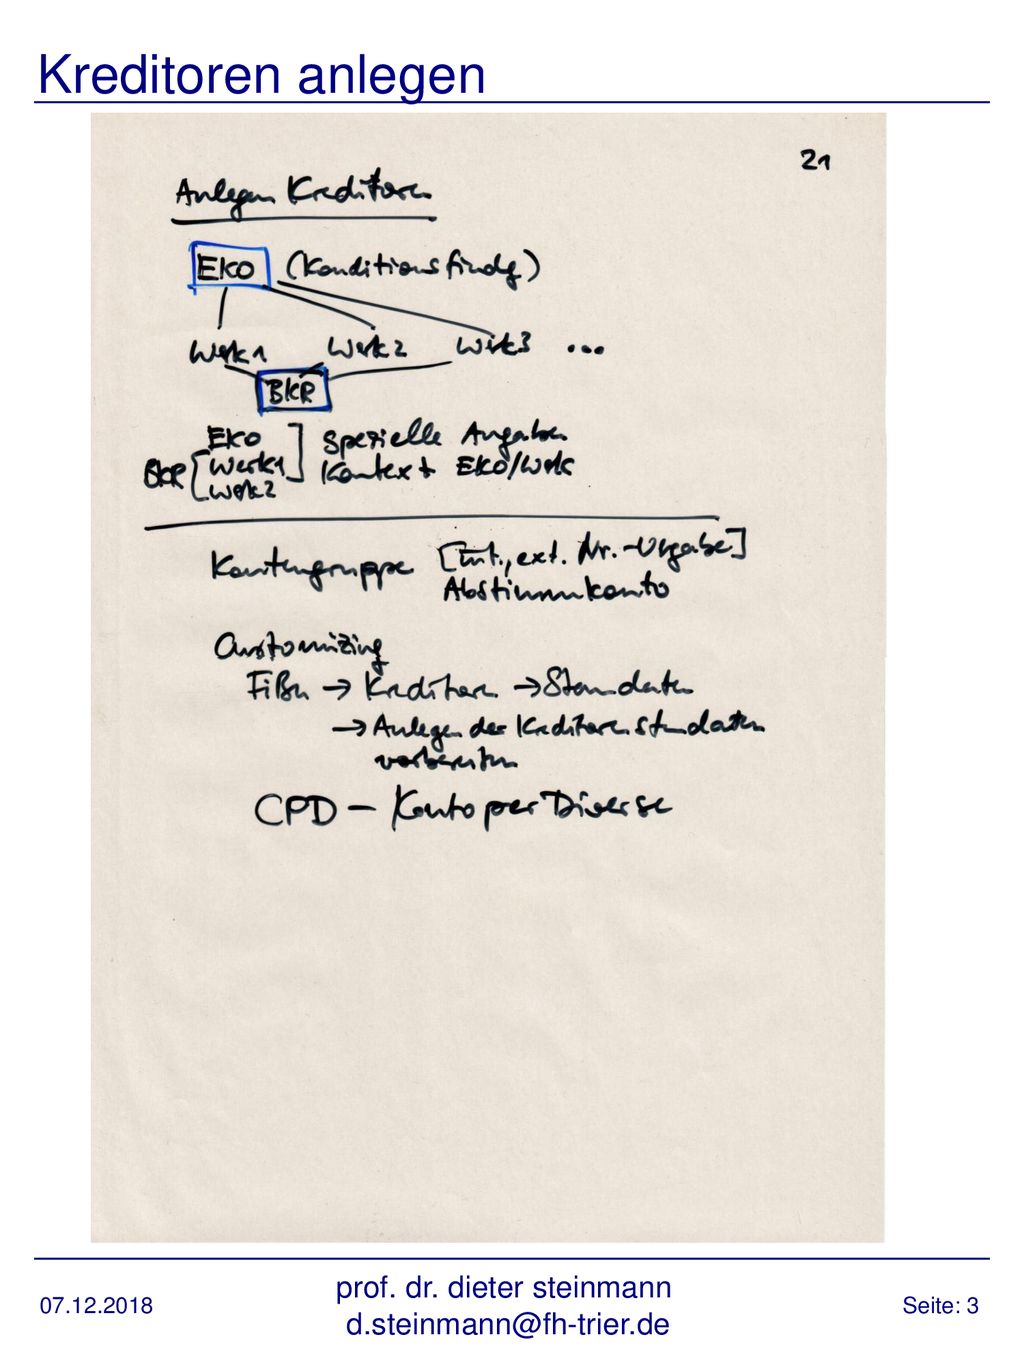 Kreditoren anlegen
21
Anlegen Kreditoren
EKO (Konditionsfindg)
Werk1 Werk2 Werk3 ...
BKR
EKO
BKR [ Werk1 ] spezielle Angaben
Werk2 Kontext EKO/Werk
Kontengruppe [Int., ext. Nr.-Vergabe]
Abstimmkonto
Customizing
FiBu → Kreditoren → Stammdaten
→ Anlegen der Kreditorenstammdaten
vorbereiten
CPD – Konto per Diverse
07.12.2018
prof. dr. dieter steinmann
d.steinmann@fh-trier.de
Seite: 3